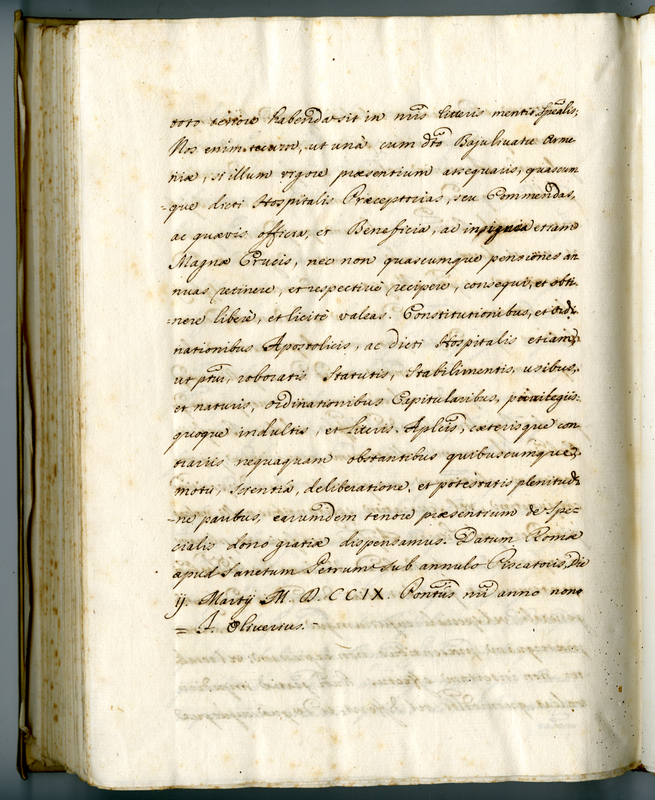 toto tenore habenda sit in nris literis mentio spealis,
Nos enim tecum, ut unà cum dto Bajulivatu Arme
niæ, si illum vigore præsentium assequaris, quascum
-que dicti Hospitalis Præceptorias, seu Commendas,
ac quævis officia, et Beneficia, ac insignia etiam
Magnæ Crucis, nec non quascumque pensiones an
nuas retinere, et respectivè recipere, consequi, et obti-
-nere liberè, et licitè valeas. Constitutionibus, et ordi-
nationibus Apostolicis, ac dicti Hospitalis etiam,
ut ptur, roboratis Statutis, Stabilimentis, usibus,
et naturis, ordinationibus Capitularibus, privilegiis
quoque indultis, et Literis Aplcis, cæterisque con
trariis nequaquam obstantibus quibuscumque,
motu, scientiâ, deliberatione, et potestatis plenitudi
-ne paribus, earumdem tenore præsentium de spe-
cialis dono gratiæ dispensamus. Datum Romæ
apud Sanctum Petrum sub annulo Piscatoris, Die
ij. Martij M. D. CCIX. Pontus nri anno nono
= J. Oliverius. -